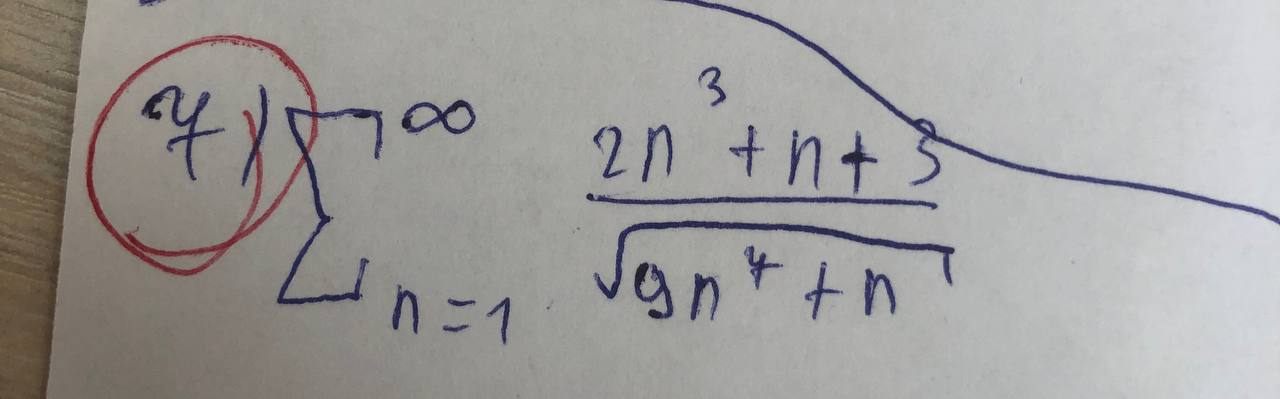 7) ∑_{n=1}^{∞} \frac{2n^3 + n + 3}{\sqrt{9n^7 + n}}